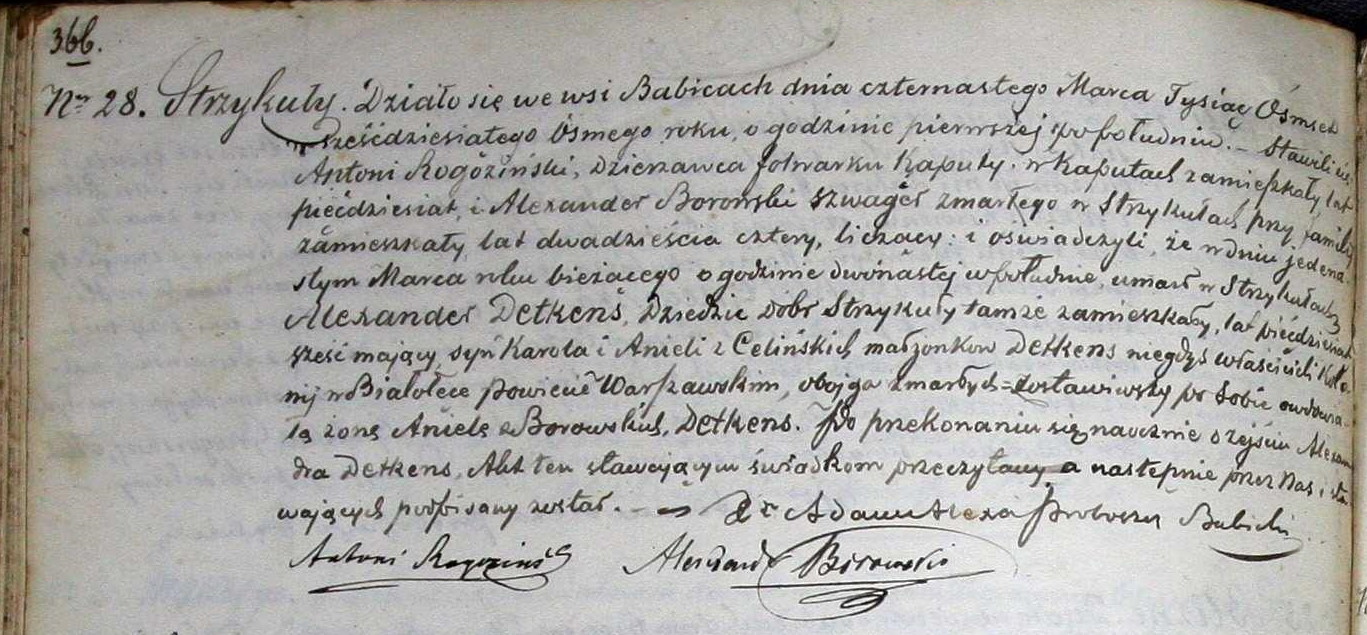 366.
Nr 28. Strzykuły. Działo się we wsi Babicach dnia czternastego Marca Tysiąc Ósmset
sześćdziesiątego Ósmego roku, o godzinie pierwszej po południu. – Stawili się,
Antoni Rogoziński, Dzierzawca folwarku Kaputy. w Kaputach zamieszkały lat
pięćdziesiąt, i Alexander Borowski szwagier zmarłego w Strzykułach przy familii
zamieszkały, lat dwadzieścia cztery, liczący: i oświadczyli, że w dniu jedena-
stym Marca roku bieżącego o godzinie dwónastej w południe, umarł w Strzykułach
Alexander Detkens, Dziedzic dóbr Strzykuły tamże zamieszkały, lat pięćdziesiąt
sześć mający, syn Karola i Anieli z Celińskich małżonków Detkens niegdyś właścicieli Kolo-
nij w Białołęce powiecie Warszawskim, obojga zmarłych = Zostawiwszy po sobie owdowia-
łą żonę Anielę z Borowskich, Detkens. Po przekonaniu się naocznie o zejściu Alexan-
dra Detkens, Akt ten stawającym świadkom przeczytany a następnie przez Nas i sta-
wających podpisany został. – Adam Proboszcz Babicki
Antoni Rogoziński Alexander Borowski